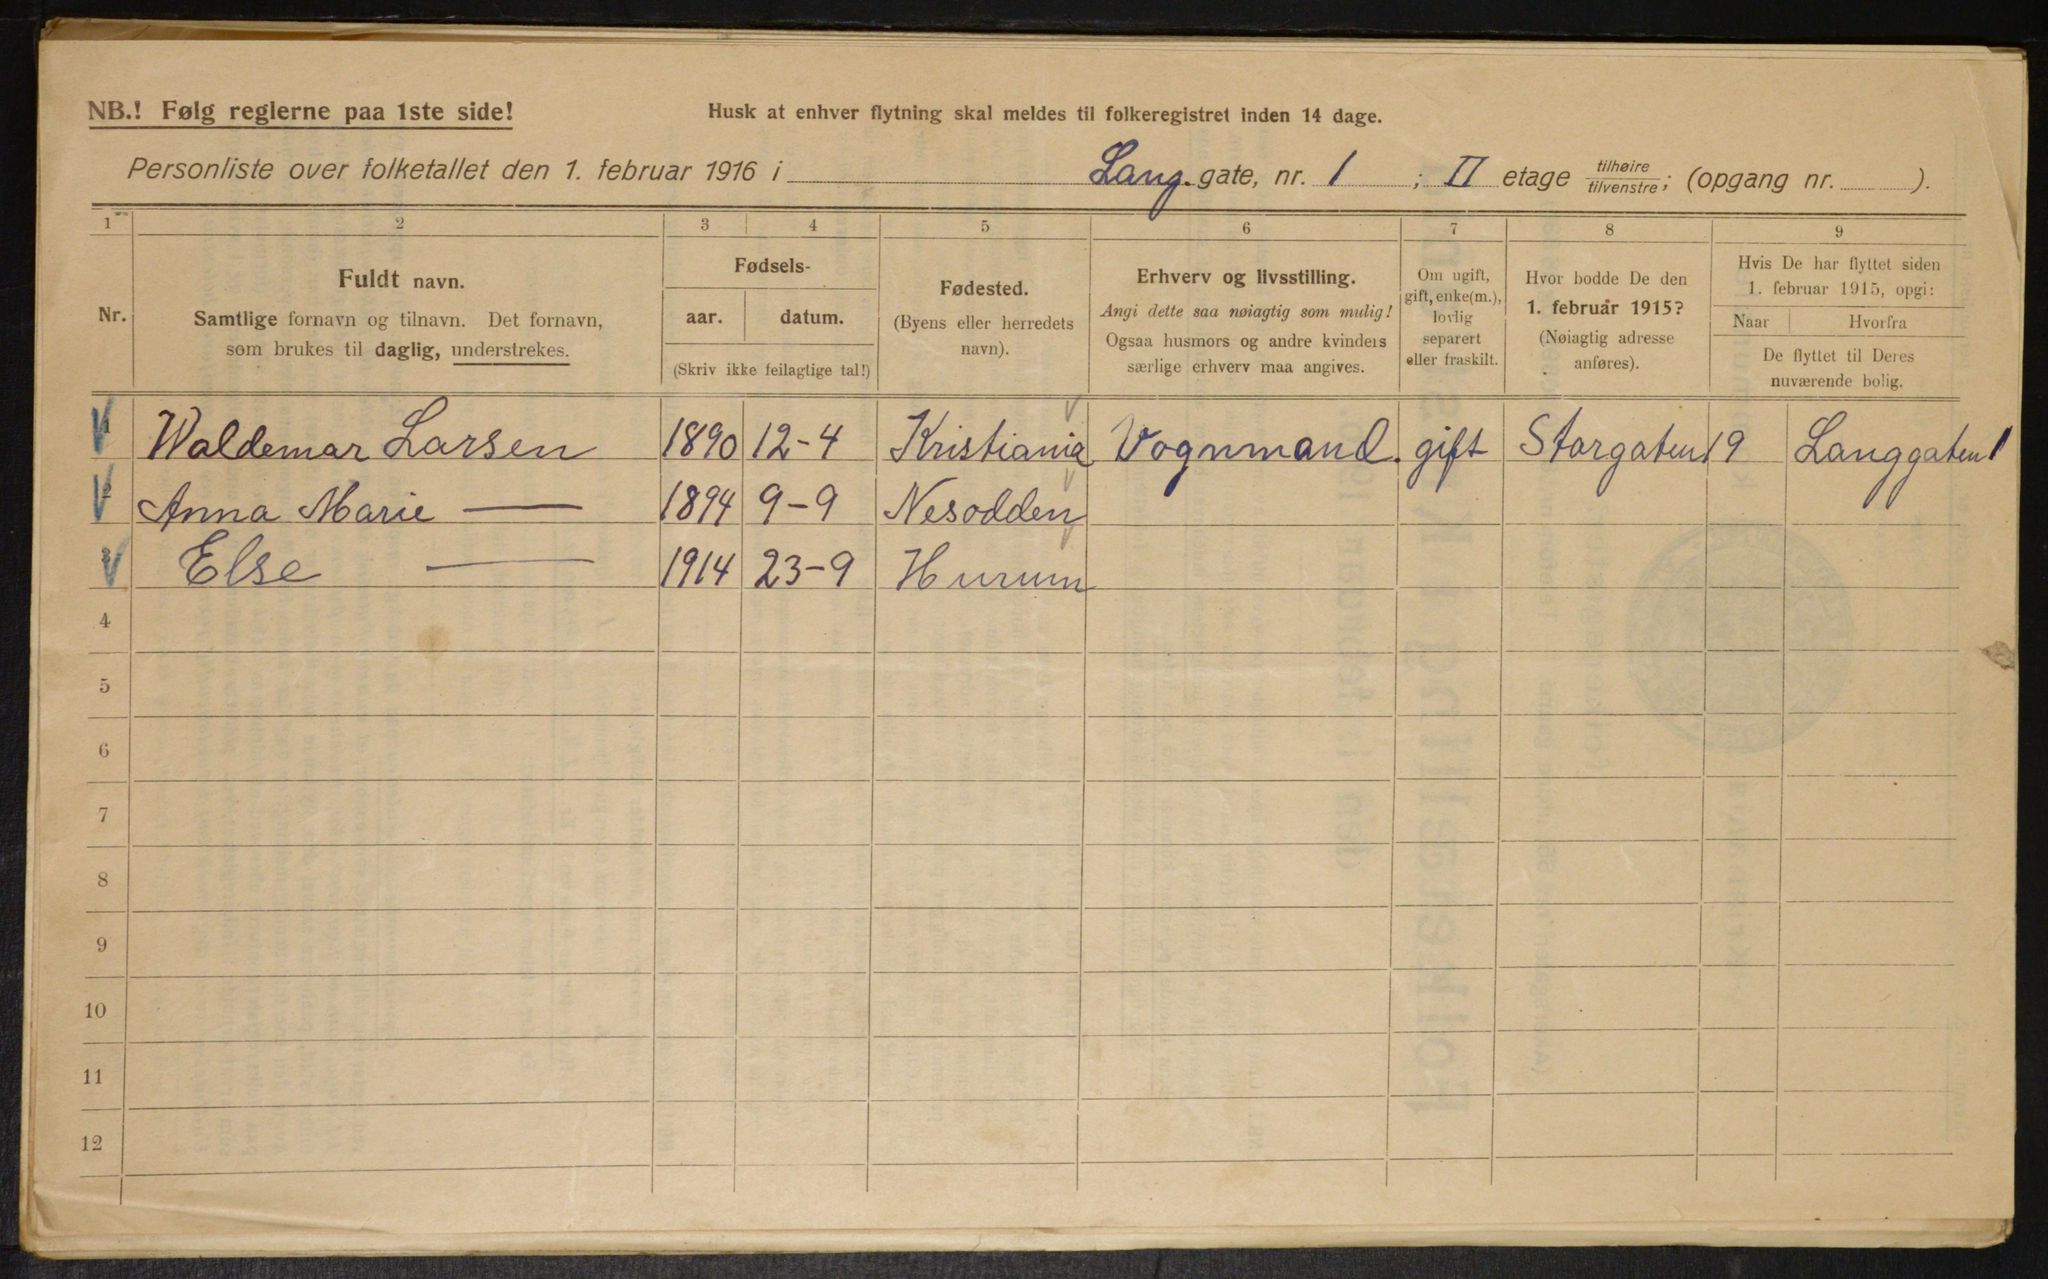 NB.! Følg reglerne paa 1ste side!
Husk at enhver flytning skal meldes til folkeregistret inden 14 dage.
Personliste over folketallet den 1. februar 1916 i Lang. gate, nr. 1 ; II etage tilhøire/tilvenstre; (opgang nr. ).
1 2 3 4 5 6 7 8 9
Nr.
Fuldt navn.
Samtlige fornavn og tilnavn. Det fornavn,
som brukes til daglig, understrekes.
Fødsels-
aar. datum.
(Skriv ikke feilagtige tal!)
Fødested.
(Byens eller herredets
navn).
Erhverv og livsstilling.
Angi dette saa nøiagtig som mulig!
Ogsaa husmors og andre kvinders
særlige erhverv maa angives.
Om ugift,
gift, enke(m.),
lovlig
separert
eller fraskilt.
Hvor bodde De den
1. februar 1915?
(Nøiagtig adresse
anføres).
Hvis De har flyttet siden
1. februar 1915, opgi:
Naar Hvorfra
De flyttet til Deres
nuværende bolig.
1 Waldemar Larsen 1890 12-4 Kristiania Vognmand. gift Storgaten 19 Langgaten 1
2 Anna Marie — 1894 9-9 Nesodden
3 Else — 1914 23-9 Hurum
4
5
6
7
8
9
10
11
12